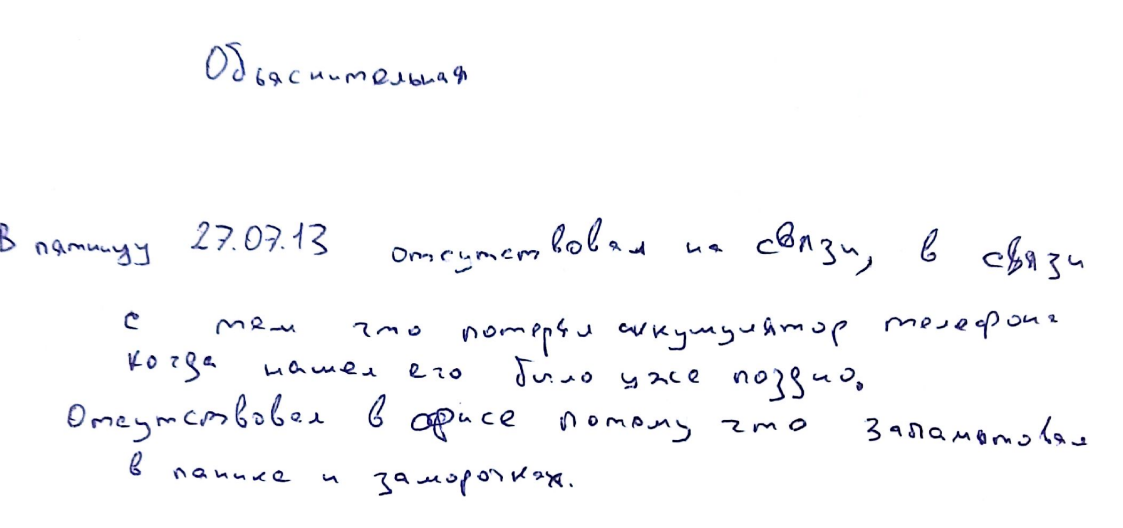 Объяснительная
В пятницу 27.07.13 отсутствовал на связи, в связи
с тем что потерял аккумулятор телефона
когда нашел его было уже поздно.
Отсутствовал в офисе потому что запаматовал
в панике и заморочках.